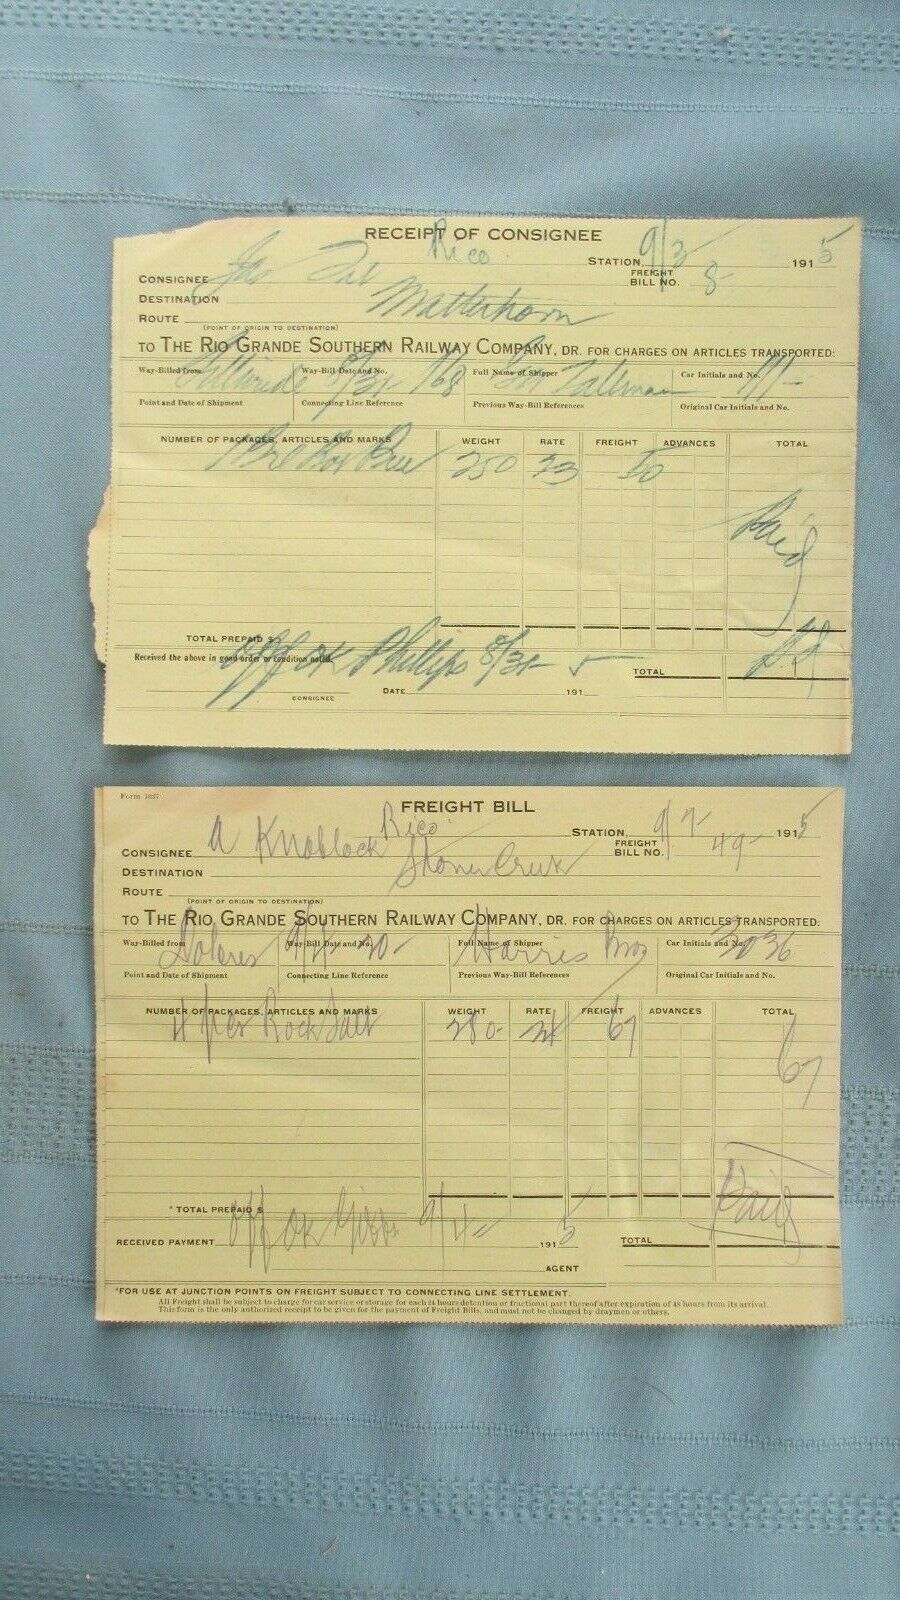 RECEIPT OF CONSIGNEE
Rico STATION, 9/3 1915
CONSIGNEE
FREIGHT BILL NO. 8
DESTINATION Matterhorn
ROUTE
(POINT OF ORIGIN TO DESTINATION)
TO THE RIO GRANDE SOUTHERN RAILWAY COMPANY, DR. FOR CHARGES ON ARTICLES TRANSPORTED:
Way-Billed from Way-Bill Date and No. 8/31 Full Name of Shipper Car Initials and No.
Point and Date of Shipment Connecting Line Reference Previous Way-Bill References Original Car Initials and No.
NUMBER OF PACKAGES, ARTICLES AND MARKS WEIGHT RATE FREIGHT ADVANCES TOTAL
250 23 50
Paid
TOTAL PREPAID $
Received the above in good order or condition noted. TOTAL
Off OK Phillips 8/31 5
CONSIGNEE DATE 191
Form 1037
FREIGHT BILL
Rico STATION, 9/7 1915
CONSIGNEE A Knoblock
FREIGHT BILL NO. 49
DESTINATION Stoner Creek
ROUTE
(POINT OF ORIGIN TO DESTINATION)
TO THE RIO GRANDE SOUTHERN RAILWAY COMPANY, DR. FOR CHARGES ON ARTICLES TRANSPORTED:
Way-Billed from Dolores Way-Bill Date and No. 9/4 20 Full Name of Shipper Harris Bros Car Initials and No. 3036
Point and Date of Shipment Connecting Line Reference Previous Way-Bill References Original Car Initials and No.
NUMBER OF PACKAGES, ARTICLES AND MARKS WEIGHT RATE FREIGHT ADVANCES TOTAL
4 pcs Rock Salt 280 24 67 67
Paid
* TOTAL PREPAID $
RECEIVED PAYMENT Off OK 9/4 1915 TOTAL
AGENT
*FOR USE AT JUNCTION POINTS ON FREIGHT SUBJECT TO CONNECTING LINE SETTLEMENT.
All Freight shall be subject to charge for car service or storage for each 24 hours detention or fractional part thereof after expiration of 48 hours from its arrival.
This form is the only authorized receipt to be given for the payment of Freight Bills, and must not be changed by draymen or others.